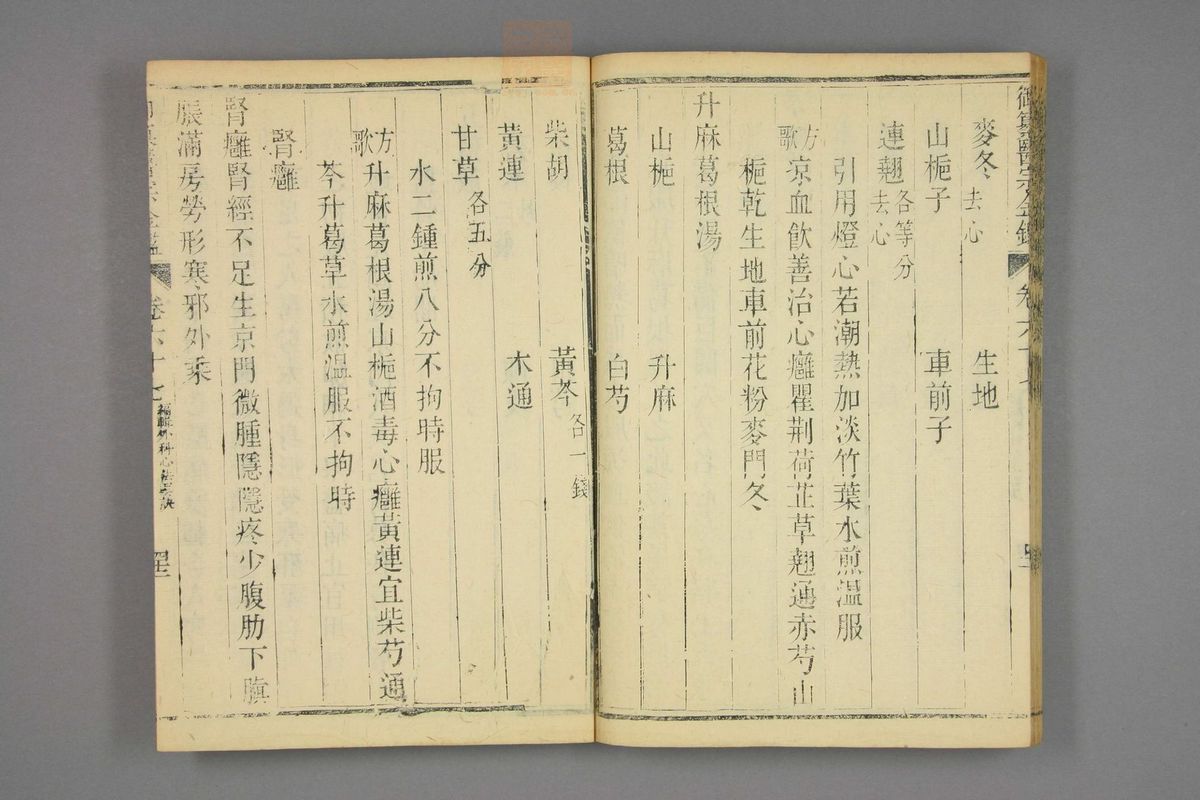 御纂醫宗金鑑 卷六十七
麥冬去心 生地
山梔子 車前子
連翹去心 各等分
引用燈心若潮熱加淡竹葉水煎溫服
方歌 涼血飲善治心癰瞿荊荷芷草翹通赤芍山
梔乾生地車前花粉麥門冬
升麻葛根湯
山梔 升麻
葛根 白芍
柴胡 黃芩各一錢
黃連 木通
甘草各五分
水二鍾煎八分不拘時服
方歌 升麻葛根湯山梔酒毒心癰黃連宜柴芍通
芩升葛草水煎溫服不拘時
腎癰
腎癰腎經不足生京門微腫隱隱疼少腹肋下䐜
脹滿房勞形寒邪外乘
卷六十七 編輯外科心法要訣